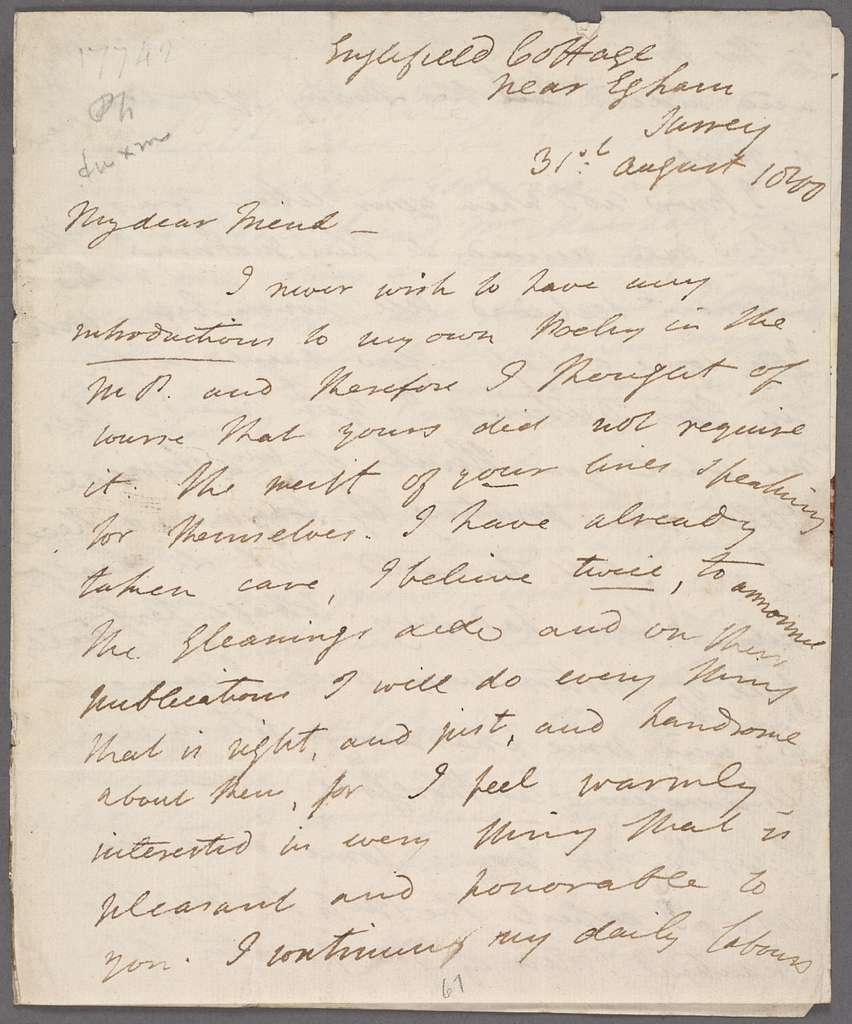 17742
Ph
Englefield Cottage
near Egham
Surrey
31st August 1800
My dear Friend —
I never wish to have any
introductions to my own Poetry in the
M P. and therefore I thought of
course that yours did not require
it. The merit of your lines speaking
for themselves. I have already
taken care, I believe twice, to announce
the Gleanings and on their
publication I will do every thing
that is right, and just, and handsome
about them, for I feel warmly
interested in every thing that is
pleasant and honorable to
you. I continue my daily labours
67